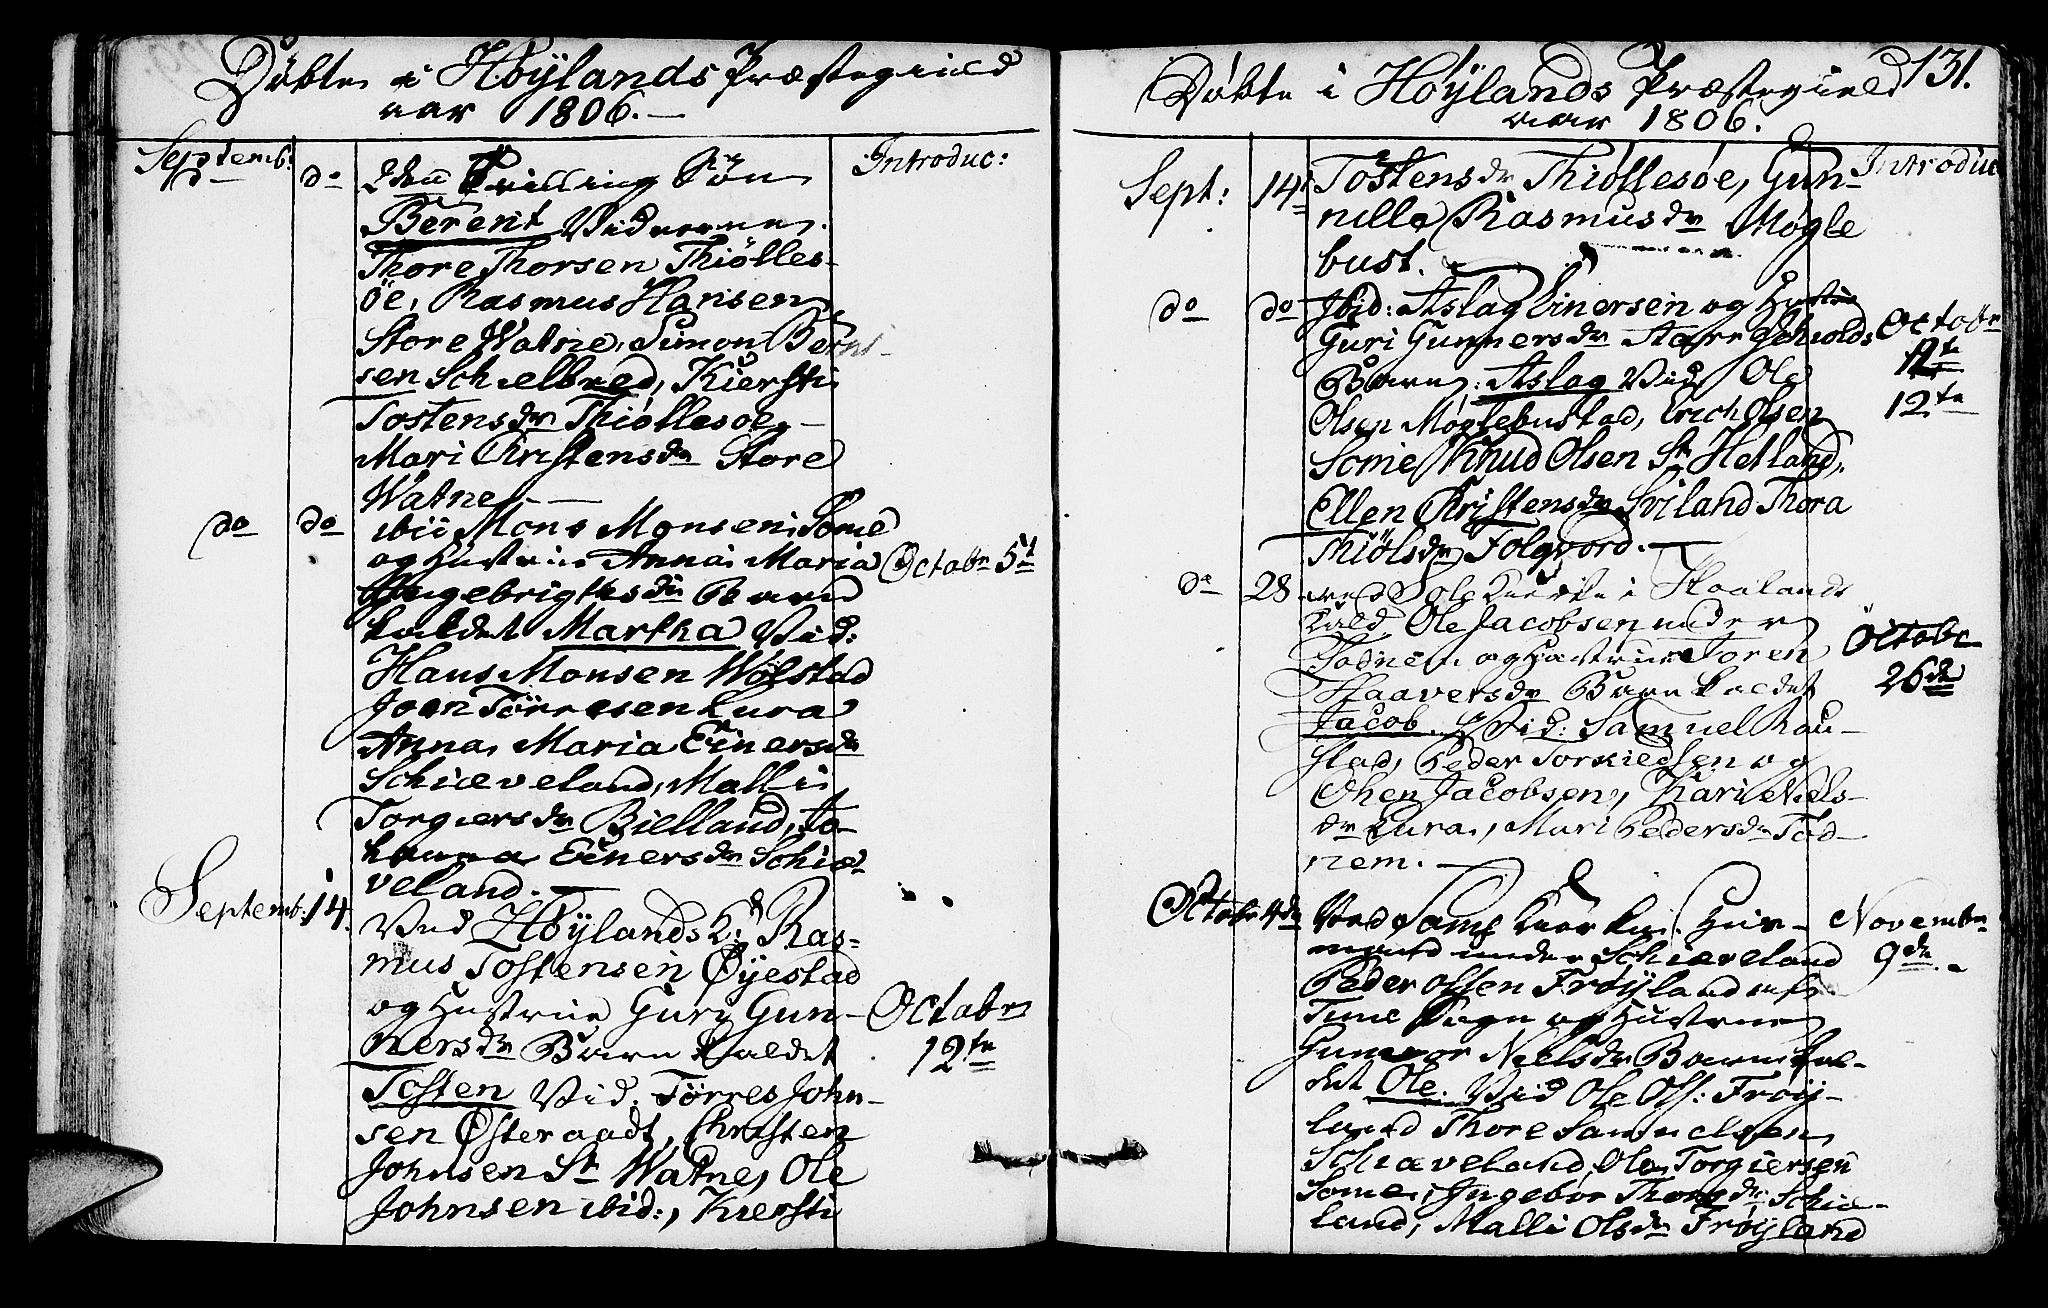 Døbte i Høylands Præstegield
aar 1806.
Septemb: do den Tvilling Søn Introduc:
Berent Vidnerne
Thore Thorsen Thiølles-
øe, Rasmus Hansen
Store Watne, Simon Bernt-
sen Schielbred, Kiersti
Tostensdr Thiøllesøe,
Mari Christensdr Store
Watne
do do ibii Mons Monsen Some
og Hustrue Anna Maria Octobr 5t
Ingebrigtsdr Barn
kaldet Martha Vid:
Hans Monsen Wølstad
Joen Tørresen Lura
Anna Maria Einersdr
Schiæveland, Malli
Torgiersdr Bielland, Jo-
hanna Einersdr Schiæ-
veland.
Septemb: 14. Ved Høylands K: Ras-
mus Tostensen Øyestad
og Hustrue Guri Gun- Octobr
nersdr Barn kaldet 12te
Tosten Vid: Tørres John-
sen Østeraadt, Christen
Johnsen St Watne, Ole
Johnsen ibid:, Kiersti
Døbte i Høylands Præstegield 131.
aar 1806.
Sept: 14 Tostensdr Thiøllesøe, Gun- Introduc
nille Rasmusdr Møgle
bust.
do do Ibid: Aslag Einersen og Hustrue
Guri Gunnersdr Octobr
Barn: Aslag Vid Ole 12te
Olsen Møglebustad, Erich Olsen 12te
Some Knud Olsen St Hetland,
Ellen Christensdr Sviland Thora
Thiølsdr Folqvord.
do 28 ved Sole Kierke i Haalands
Giæld Ole Jacobsen
Todnem og Hustrue Toren Octobr
Haaversdr Barn kaldet 26de
Jacob. Vid: Samuel Rau-
stad, Peder Torkieldsen og
Ohen Jacobsen, Kari Niels-
dr Lura, Mari Pedersdr Tod-
nem.
Octobr 4de Ved Samme Kierke Huus- Novembr
mand under Schiæveland 9de
Peder Olsen Frøyland
Time Sogn og Hustrue
Gunvor Nielsdr Barn kal-
det Ole. Vid Ole Ols: Frøy-
land Thore Samuelsen
Schiæveland, Ole Torgiersen
Some, Ingebor Thorsdr Schiæ-
land, Malli Olsdr Frøyland